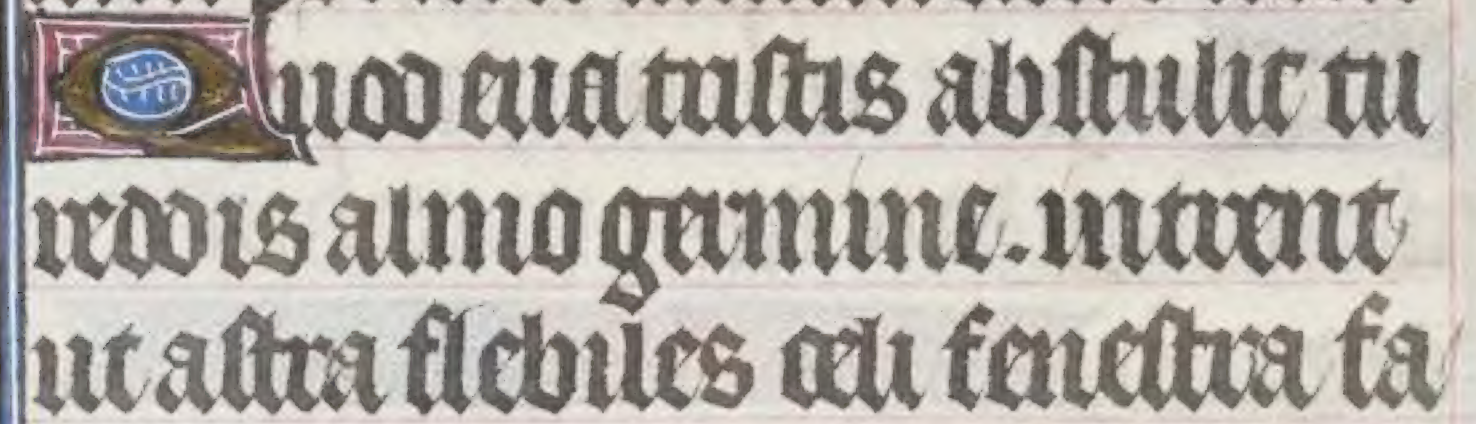 Quod eua tristis abstulit tu
reddis almo germine. intrent
ut astra flebiles celi fenestra fa